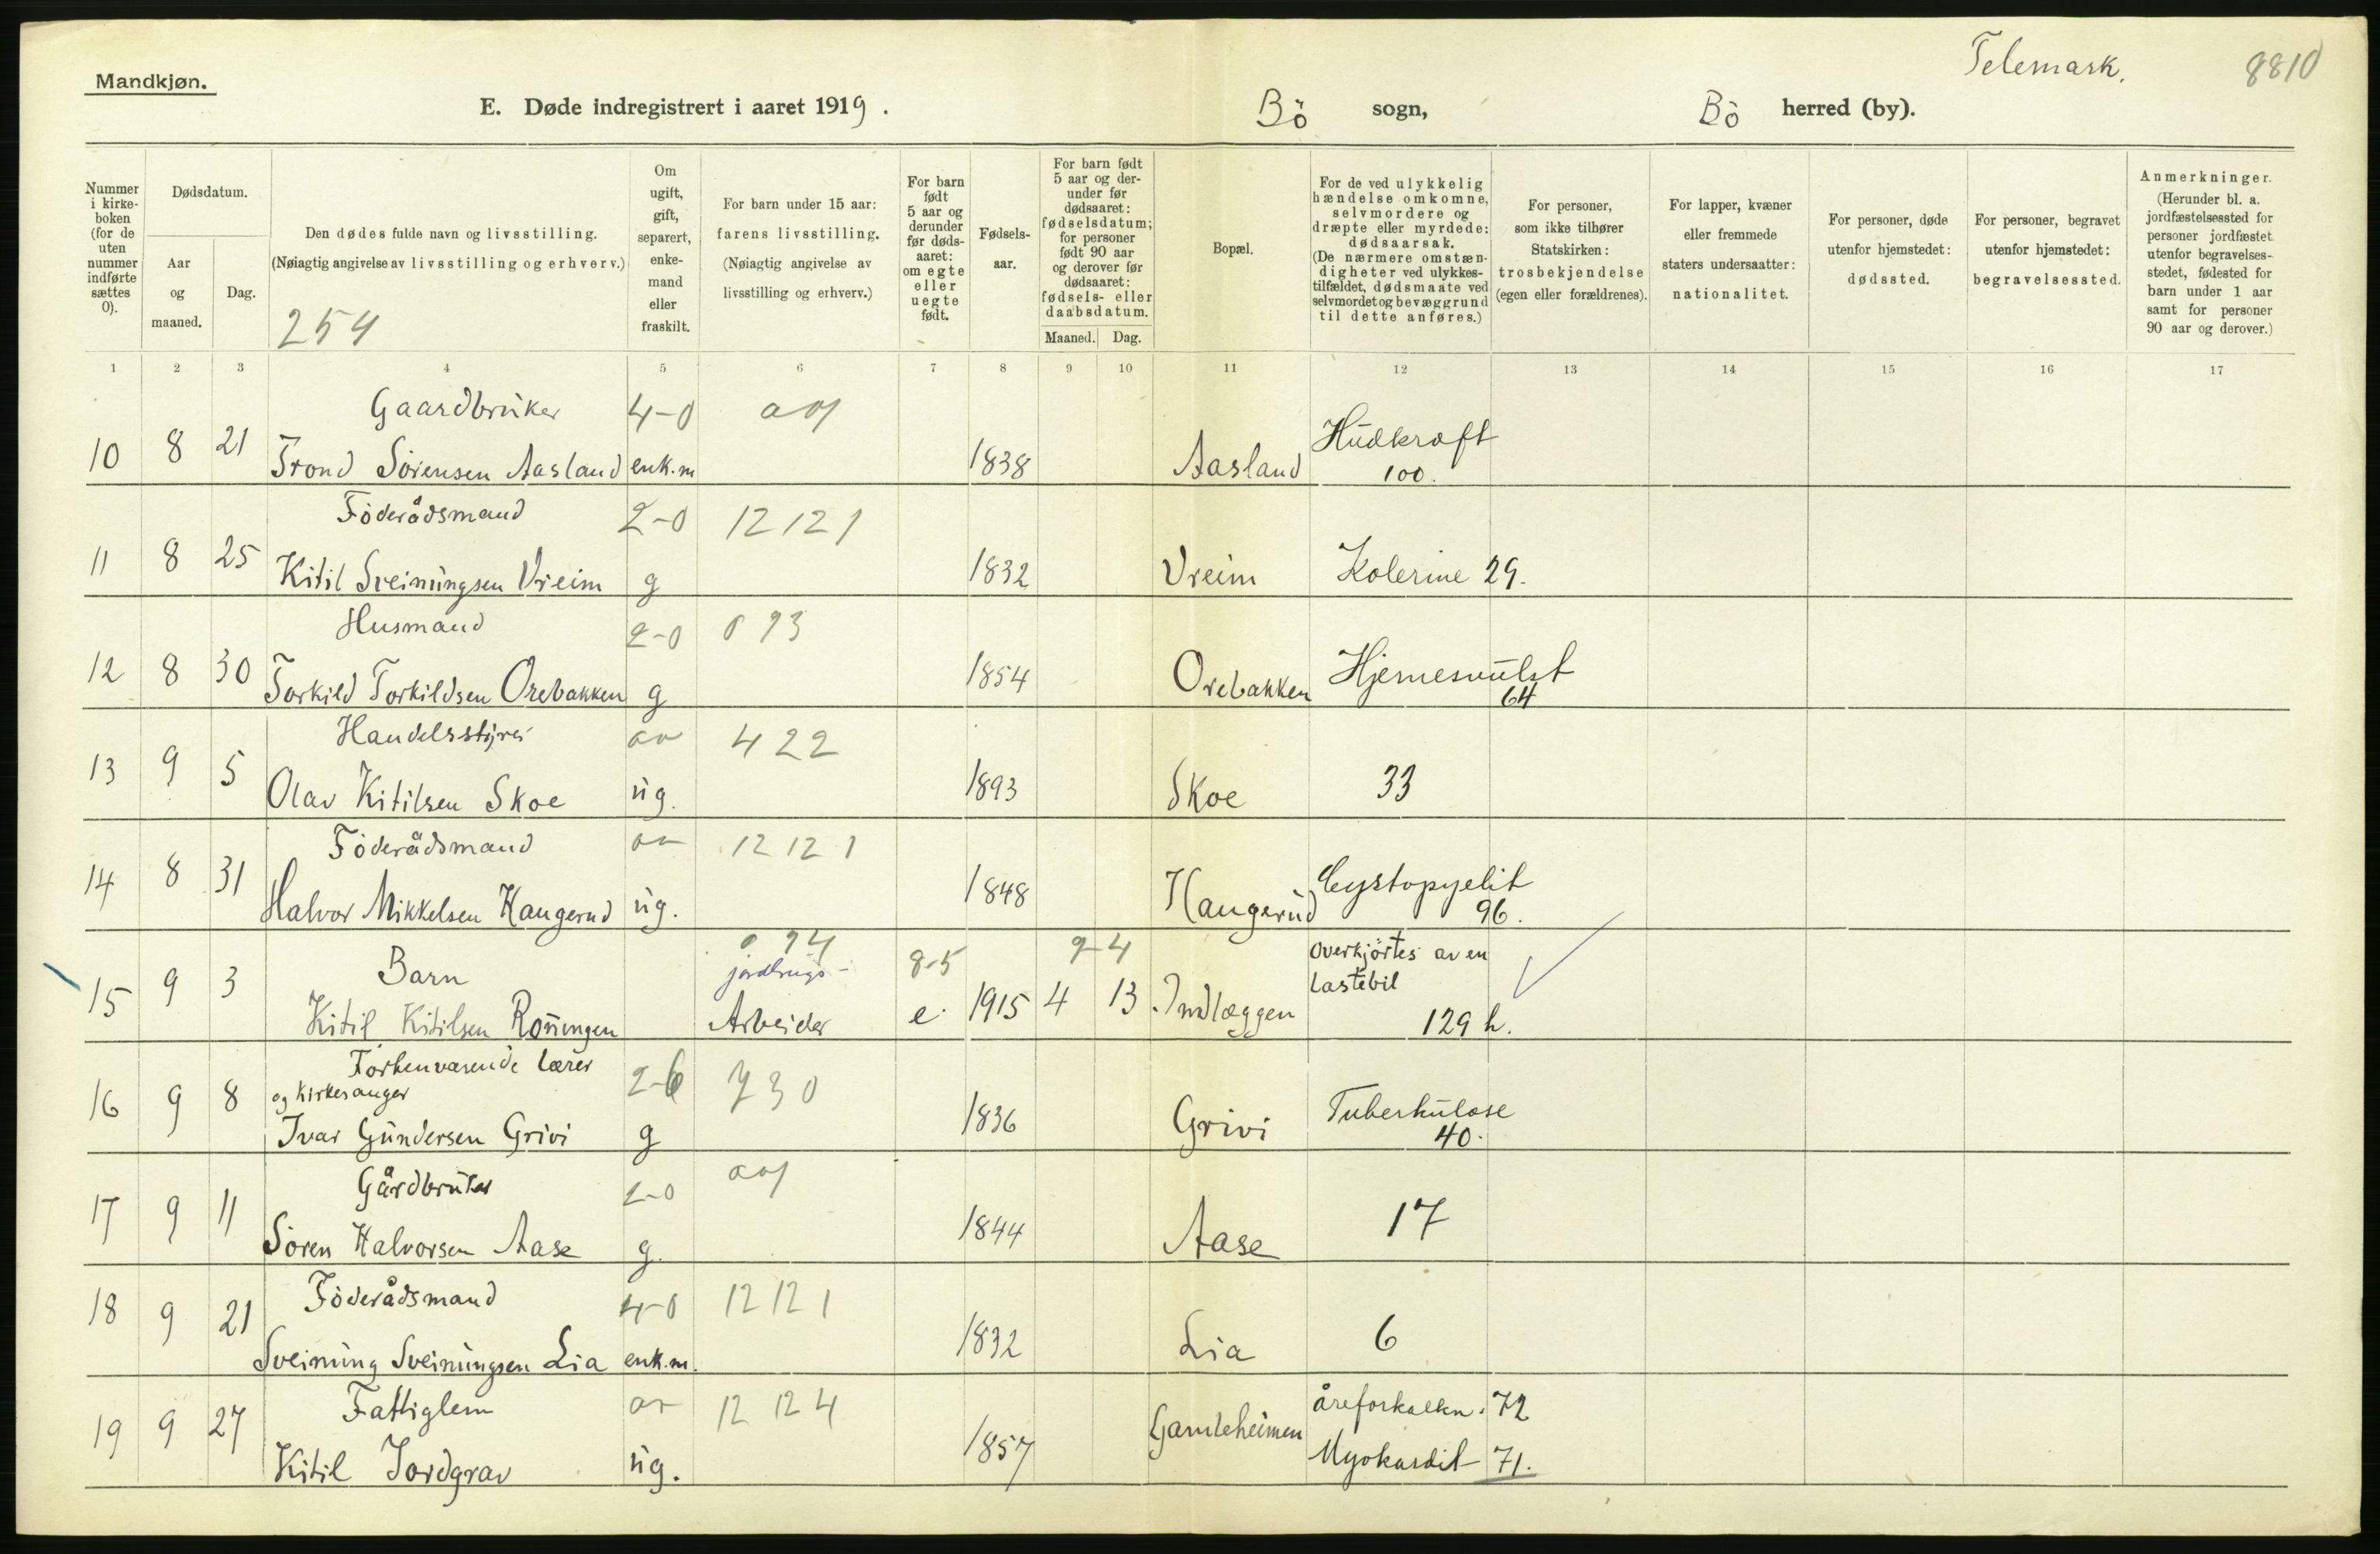 Telemark.
8810
Mandkjøn.
E. Døde indregistrert i aaret 1919.
Bö sogn,
Bö herred (by).
Nummer i kirkeboken (for de uten nummer indførte sættes 0).
Dødsdatum.
Aar og maaned.
Dag.
Den dødes fulde navn og livsstilling.
(Nøiagtig angivelse av livsstilling og erhverv.)
254
Om ugift, gift, separert, enkemand eller fraskilt.
For barn under 15 aar: farens livsstilling.
(Nøiagtig angivelse av livsstilling og erhverv.)
For barn født 5 aar og derunder før dødsaaret: om egte eller uegte født.
Fødselsaar.
For barn født 5 aar og derunder før dødsaaret: fødselsdatum; for personer født 90 aar og derover før dødsaaret: fødsels- eller daabsdatum.
Maaned. Dag.
Bopæl.
For de ved ulykkelig hændelse omkomne, selvmordere og dræpte eller myrdede: dødsaarsak.
(De nærmere omstændigheter ved ulykkestilfældet, dødsmaate ved selvmordet og bevæggrund til dette anføres.)
For personer, som ikke tilhører Statskirken: trosbekjendelse (egen eller forældrenes).
For lapper, kvæner eller fremmede staters undersaatter: nationalitet.
For personer, døde utenfor hjemstedet: dødssted.
For personer, begravet utenfor hjemstedet: begravelsessted.
Anmerkninger.
(Herunder bl. a. jordfæstelsessted for personer jordfæstet utenfor begravelsesstedet, fødested for barn under 1 aar samt for personer 90 aar og derover.)
1 2 3 4 5 6 7 8 9 10 11 12 13 14 15 16 17
Gaardbruker 4-0
10 8 21 Trond Sörensen Aasland enk.m 1838 Aasland Hudkræft
100.
Föderådsmand 2-0 12 12 1
11 8 25 Kitil Sveinungsen Vreim g 1832 Vreim Kolerine 29.
Husmand 2-0 0 93
12 8 30 Torkild Torkildsen Orebakken g 1854 Orebakken Hjernesvulst
64
Handelsstyrer 422
13 9 5 Olav Kitilsen Skoe ug. 1893 Skoe 33
Föderådsmand 12 12 1
14 8 31 Halvor Mikkelsen Haugerud ug. 1848 Haugerud Cystopyelit
96.
0 94 8-5 9-4 Overkjörtes av en
Barn jordbrugs- lastebil
15 9 3 Kitil Kitilsen Rönningen Arbeider e. 1915 4 13 Indlæggen 129 h.
Forhenværende lærer 2-6 730
og kirkesanger
16 9 8 Ivar Gundersen Grivi g 1836 Grivi Tuberkulose
40.
Gårdbruker 2-0
17 9 11 Sören Halvorsen Aase g. 1844 Aase 17
Föderådsmand 4-0 12 12 1
18 9 21 Sveinung Sveinungsen Lia enk.m. 1832 Lia 6
Fattiglem 12 12 4 åreforkalkn. 72
19 9 27 Kitil Jordgrav ug. 1857 Gamleheimen Myokardit 71.